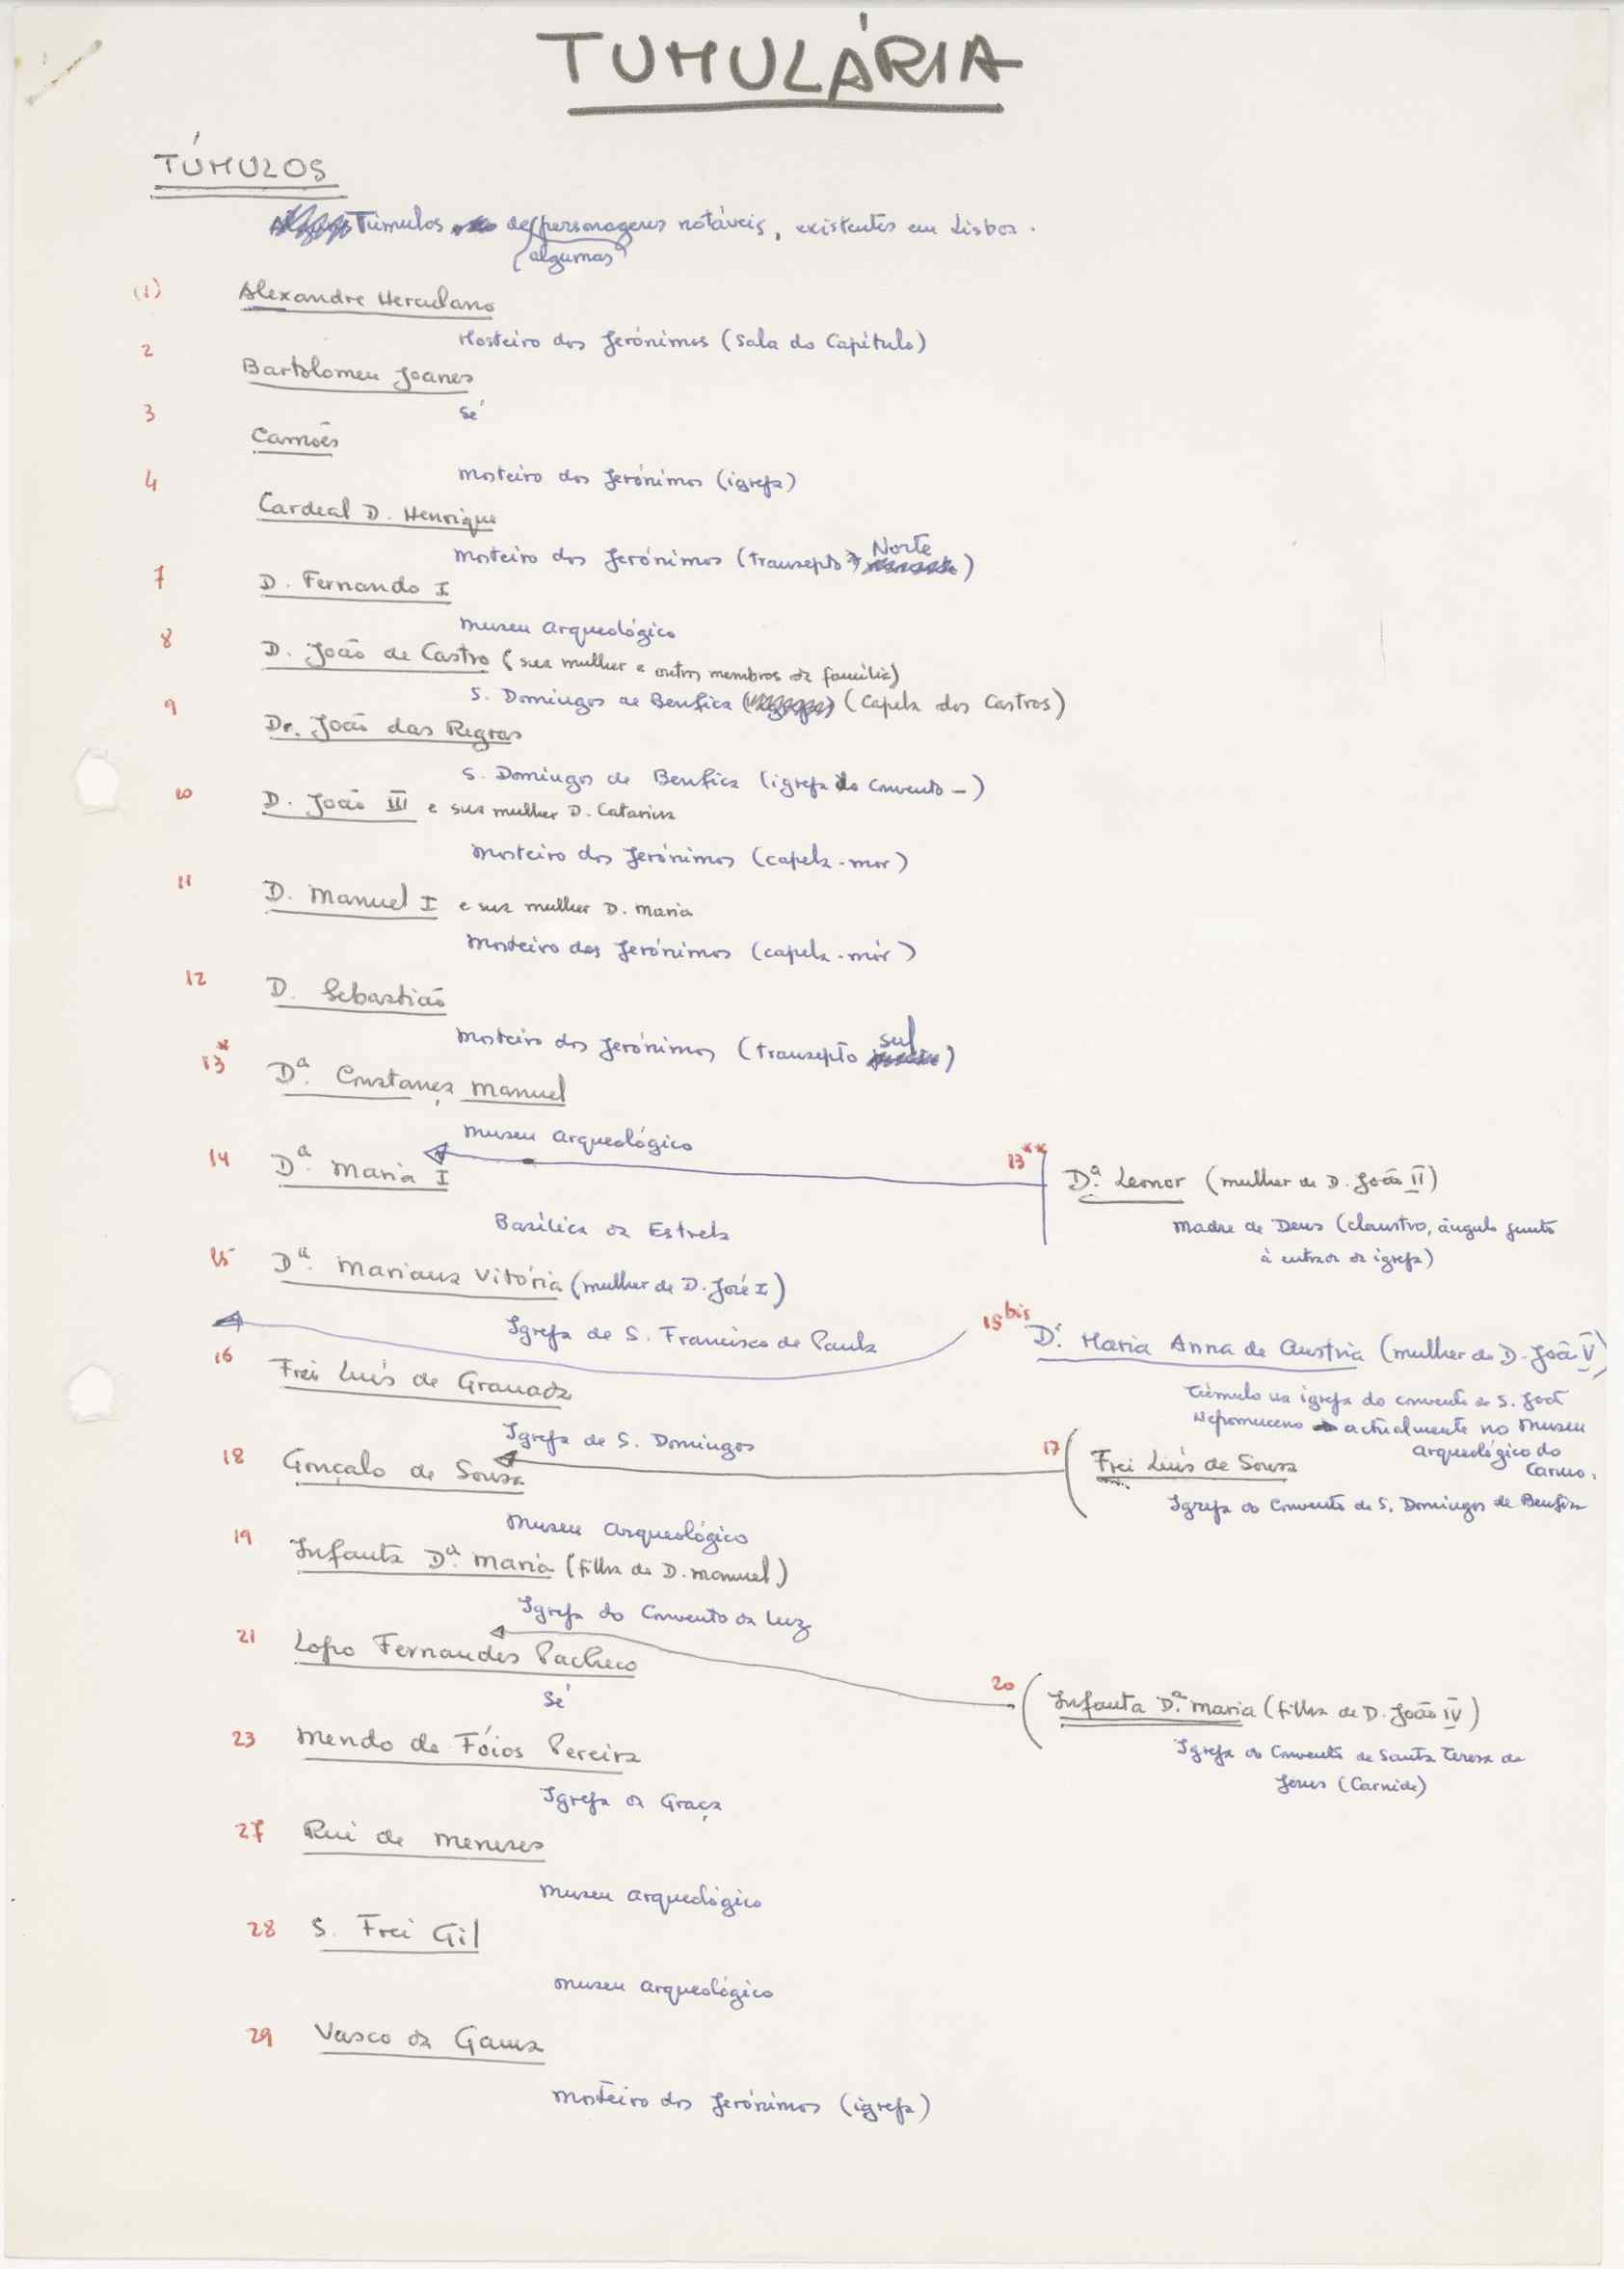 TUMULÁRIA
TÚMULOS
Túmulos de personagens notáveis, existentes em Lisboa.
(algumas)
(1) Alexandre Herculano
Mosteiro dos Jerónimos (Sala do Capítulo)
2 Bartolomeu Joanes
Sé
3 Camões
Mosteiro dos Jerónimos (igreja)
4 Cardeal D. Henrique
Mosteiro dos Jerónimos (transepto Norte)
7 D. Fernando I
Museu Arqueológico
8 D. João de Castro (sua mulher e outros membros da família)
S. Domingos de Benfica (Capela dos Castros)
9 Dr. João das Regras
S. Domingos de Benfica (igreja do Convento -)
10 D. João III e sua mulher D. Catarina
Mosteiro dos Jerónimos (capela-mor)
11 D. Manuel I e sua mulher D. Maria
Mosteiro dos Jerónimos (capela-mór)
12 D. Sebastião
Mosteiro dos Jerónimos (transepto sul)
13* Dª. Constança Manuel
Museu Arqueológico
13** Dª. Leonor (mulher de D. João II)
Madre de Deus (claustro, ângulo junto
à entrada da igreja)
14 Dª. Maria I
Basílica da Estrela
15 Dª. Mariana Vitória (mulher de D. José I)
Igreja de S. Francisco de Paula
15 bis Dª. Maria Anna de Austria (mulher de D. João V)
Túmulo na igreja do convento de S. João
Nepomuceno actualmente no Museu
arqueológico do
Carmo.
16 Frei Luís de Granada
Igreja de S. Domingos
17 Frei Luís de Sousa
Igreja do Convento de S. Domingos de Benfica
18 Gonçalo de Sousa
Museu Arqueológico
19 Infanta Dª. Maria (filha de D. Manuel)
Igreja do Convento da Luz
20 Infanta Dª. Maria (filha de D. João IV)
Igreja do Convento de Santa Teresa de
Jesus (Carnide)
21 Lopo Fernandes Pacheco
Sé
23 Mendo de Fóios Pereira
Igreja da Graça
27 Rui de Meneses
Museu Arqueológico
28 S. Frei Gil
Museu Arqueológico
29 Vasco da Gama
Mosteiro dos Jerónimos (igreja)